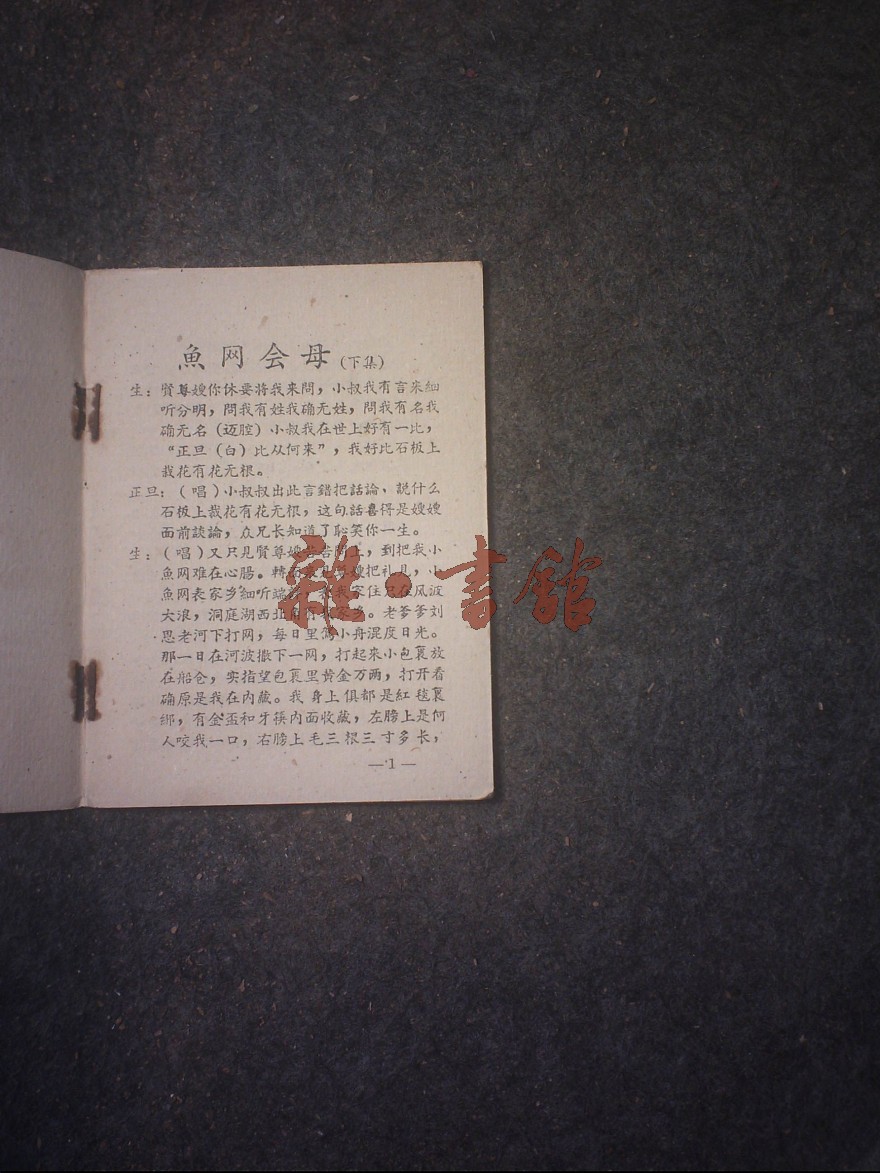 魚网会母(下集)
生：賢尊嫂你休要将我来問，小叔我有言来細
听分明，問我有姓我确无姓，問我有名我
确无名(迈腔)小叔我在世上好有一比，
“正旦(白)比从何来”，我好比石板上
栽花有花无根。
正旦：(唱)小叔叔出此言錯把話論、説什么
石板上栽花有花无根，这句話喜得是嫂嫂
面前談論，众兄长知道了恥笑你一生。
生：(唱)又只見賢尊嫂 上，到把我小
魚网难在心腸。轉 嫂把礼見，小
魚网表家乡細听端 我家住 在风波
大浪，洞庭湖西北 老爹爹刘
思老河下打网，每日里駕小舟混度日光。
那一日在河波撒下一网，打起来小包裹放
在船仓，实指望包裹里黄金万两，打开看
确原是我在内藏。我身上俱都是紅毯裹
綁，有金盃和牙筷内面收藏，左膀上是何
人咬我一口，右膀上毛三根三寸多长，
—1—
雜·書館